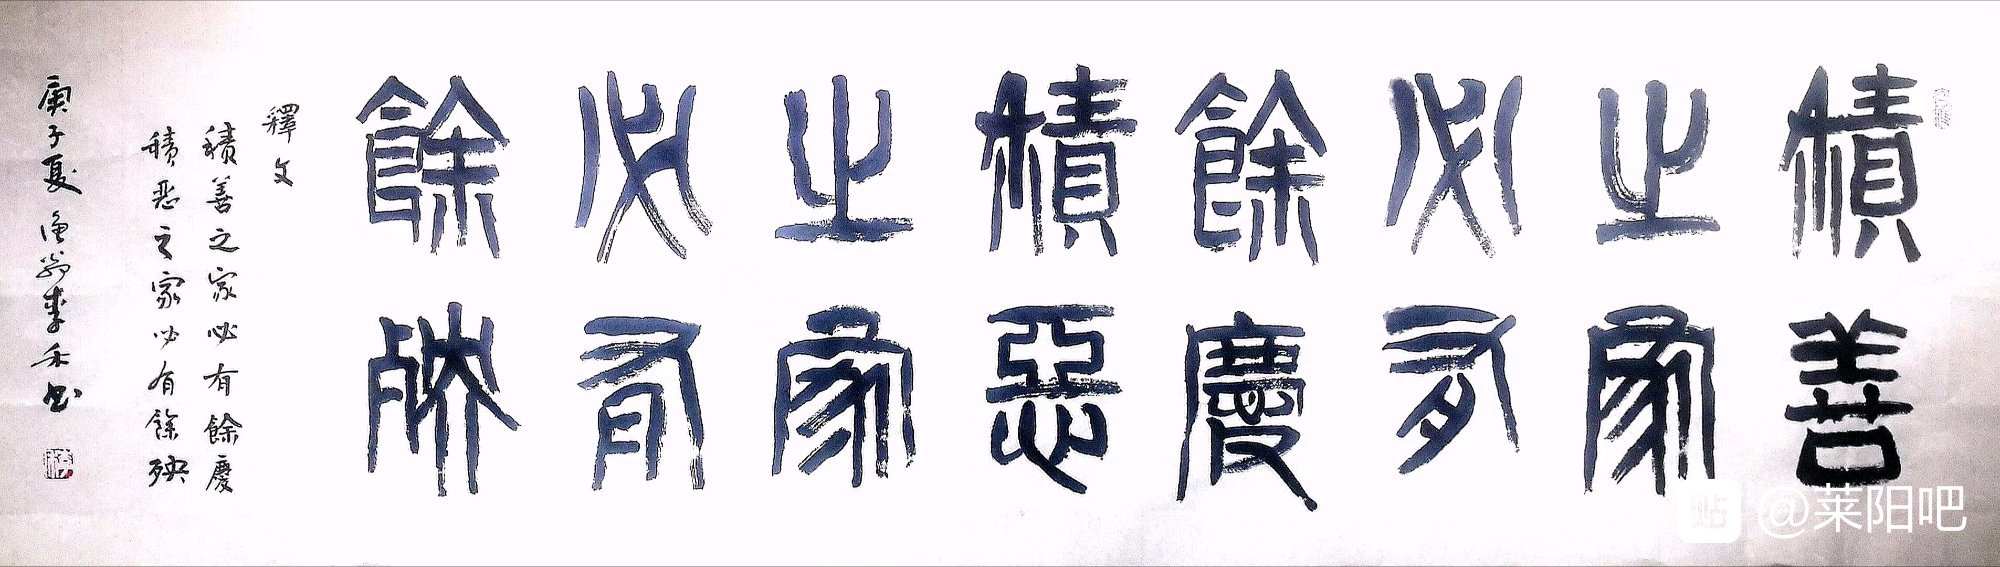 積善
之家
必有
餘慶
積惡
之家
必有
餘殃
釋文
積善之家必有餘慶
積恶之家必有餘殃
庚子夏 漁翁 禾书
貼 @莱阳吧